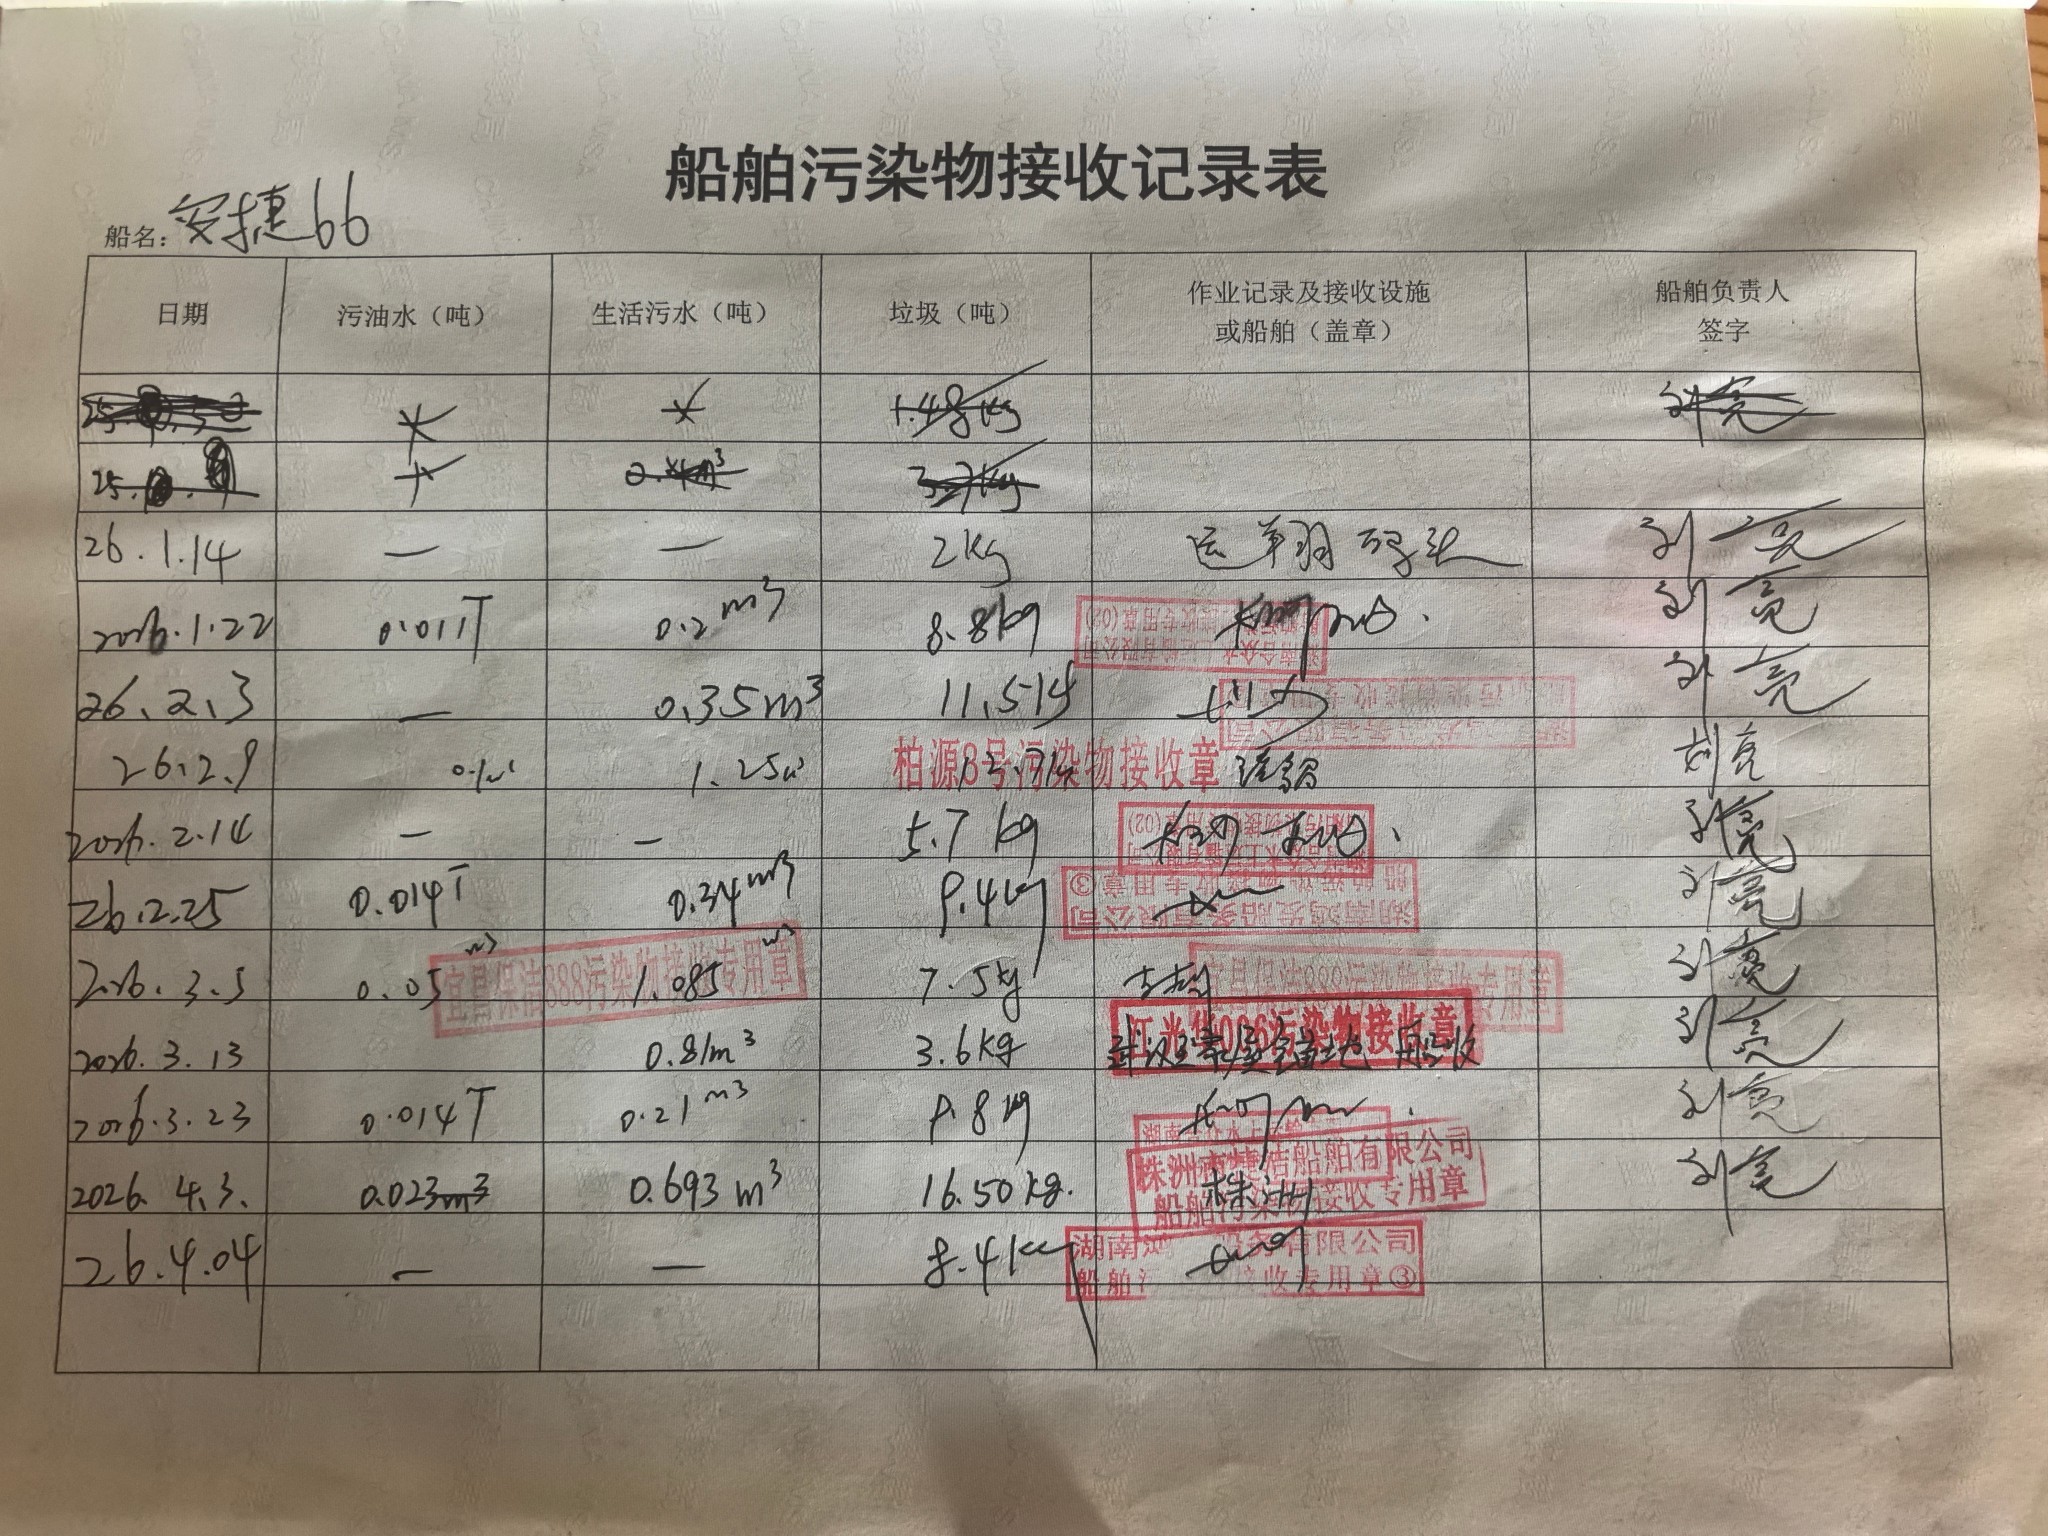 船舶污染物接收记录表
船名：安捷66
日期 污油水（吨） 生活污水（吨） 垃圾（吨） 作业记录及接收设施或船舶（盖章） 船舶负责人签字
1.48kg 刘亮
25. 3.7kg
26.1.14 — — 2kg 运翔码头 刘亮
2026.1.22 0.011T 0.2m³ 8.8kg 刘亮
26.2.3 — 0.35m³ 11.5 刘亮
26.2.9 0.1m³ 1.25m³ 柏源8号污染物接收章 刘亮
2026.2.14 — — 5.7kg 刘亮
26.2.25 0.014T 0.34m³ 9.4kg 湖南鸿发船务有限公司 船舶污染物接收专用章③ 刘亮
2026.3.5 0.05m³ 宜昌保洁888污染物接收专用章 1.085m³ 7.5kg 宜昌保洁888污染物接收专用章 刘亮
2026.3.13 0.81m³ 3.6kg 污染物接收章 刘亮
2026.3.23 0.014T 0.21m³ 9.8kg 刘亮
2026.4.3. 0.023m³ 0.693m³ 16.50kg. 株洲市捷浩船舶有限公司 船舶污染物接收专用章 株洲 刘亮
26.4.04 — — 8.4kg 湖南鸿 船务有限公司 船舶 接收专用章③